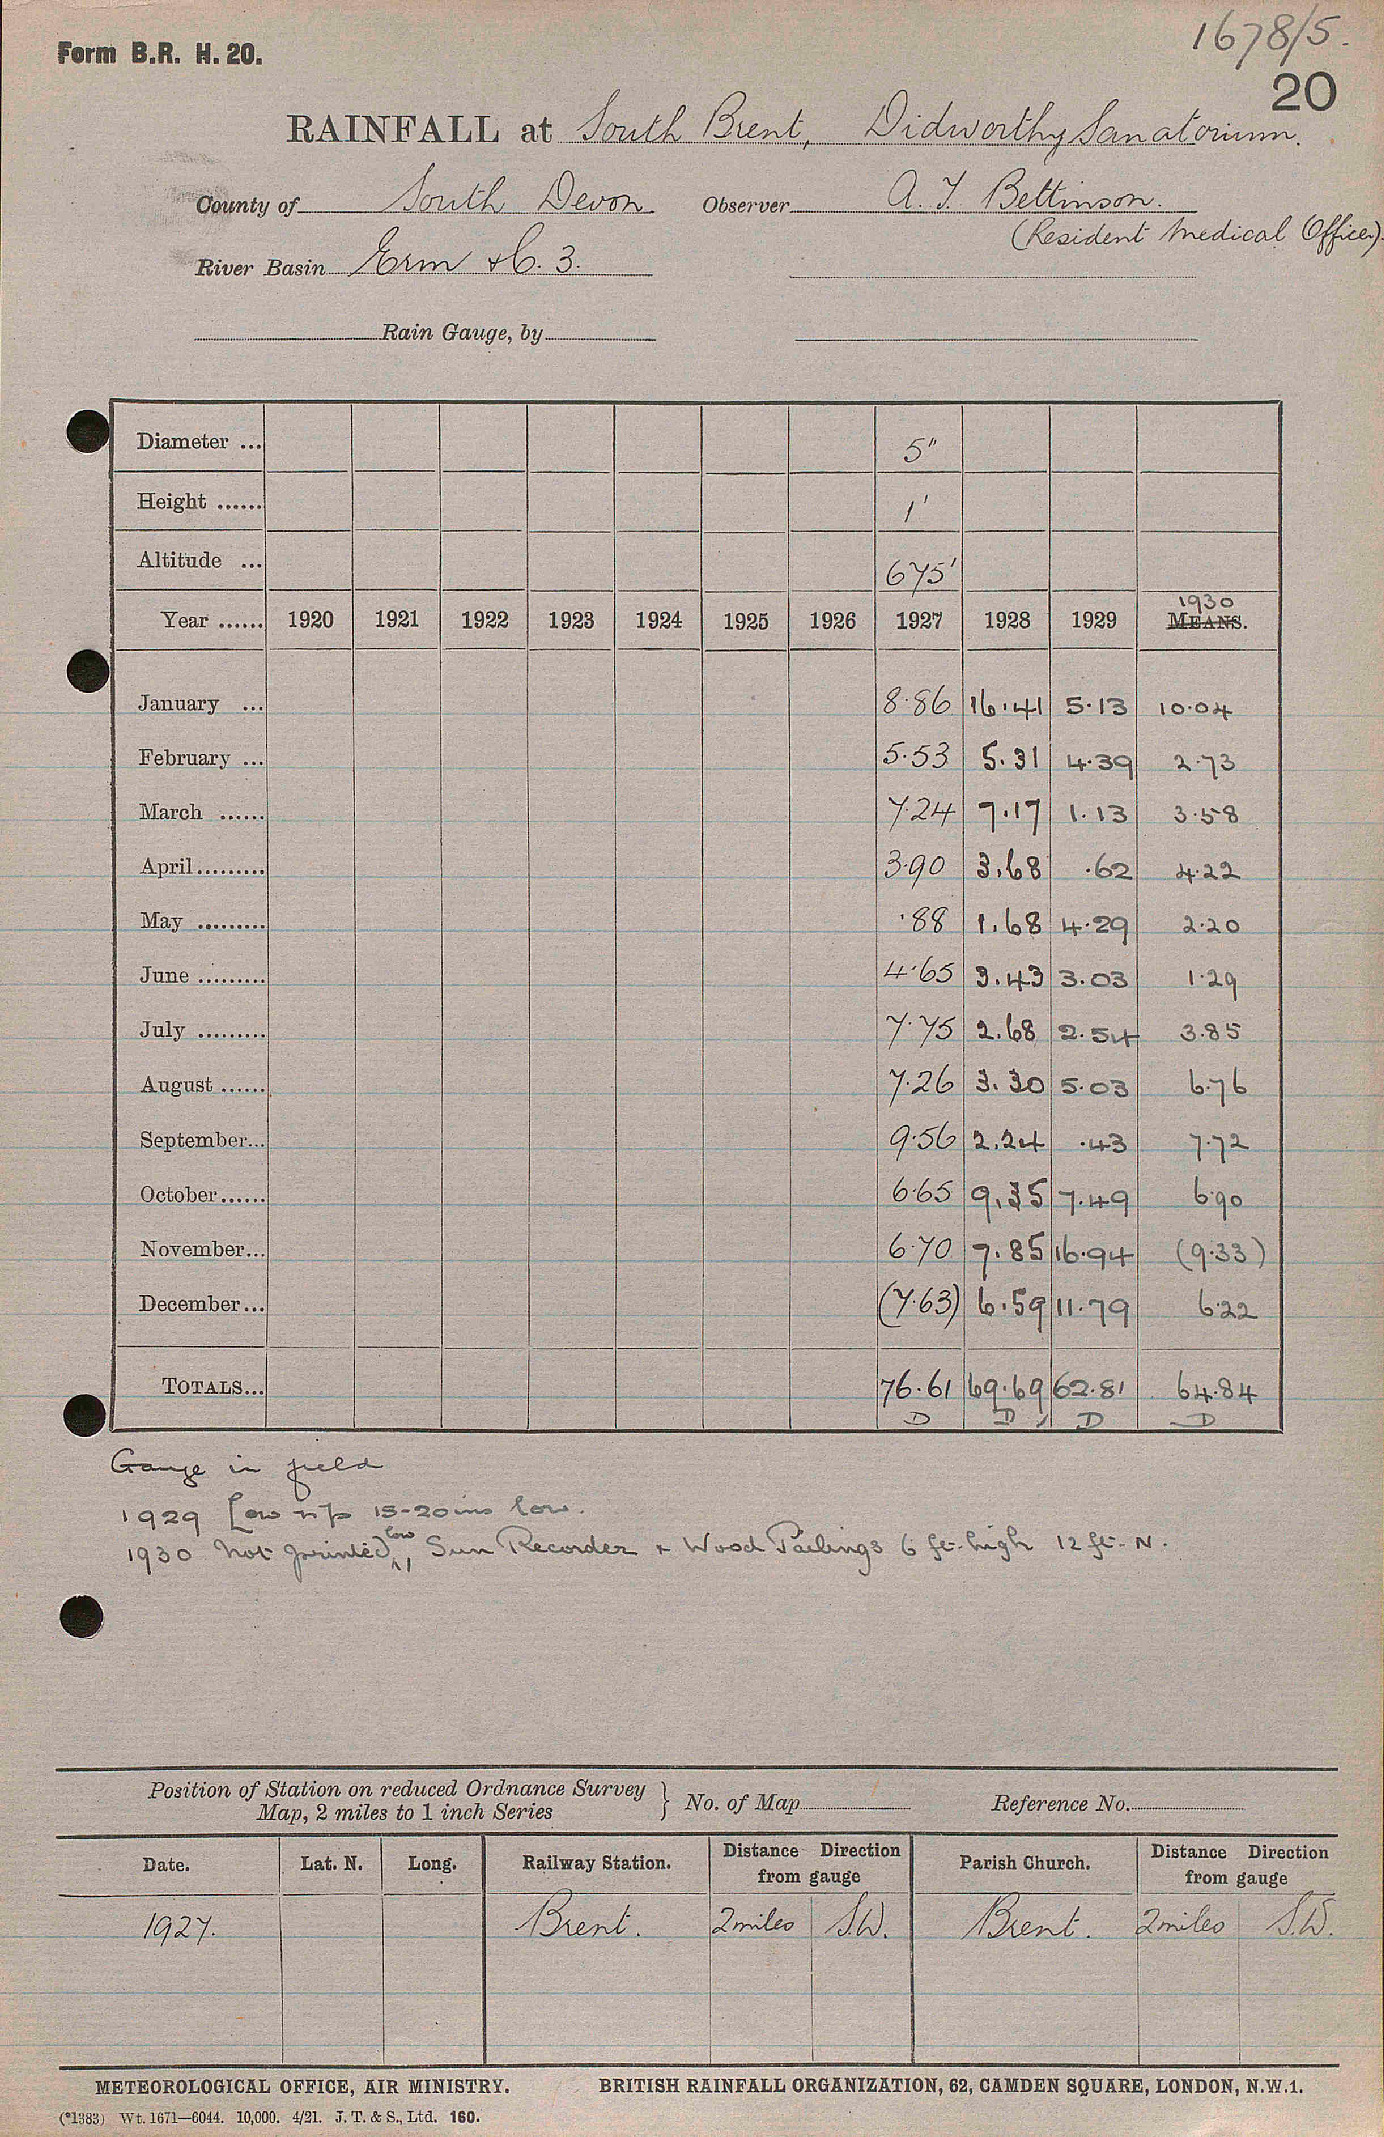 1678/5.
Form B.R. H. 20.
20
RAINFALL at South Brent, Didworthy Sanatorium.
County of South Devon Observer A. J. Bettinson.
(Resident Medical Officer).
River Basin Erm &C. 3.
Rain Gauge, by
Diameter ... 5"
Height ...... 1'
Altitude ... 675'
1930
Year ...... 1920 1921 1922 1923 1924 1925 1926 1927 1928 1929 MEANS.
January ... 8.86 16.41 5.13 10.04
February ... 5.53 5.31 4.39 2.73
March ...... 7.24 7.17 1.13 3.58
April......... 3.90 3.68 .62 4.22
May ......... .88 1.68 4.29 2.20
June ......... 4.65 3.43 3.03 1.29
July ......... 7.75 2.68 2.54 3.85
August ...... 7.26 3.30 5.03 6.76
September... 9.56 2.24 .43 7.72
October...... 6.65 9.35 7.49 6.90
November... 6.70 7.85 16.94 (9.33)
December... (7.63) 6.59 11.79 6.22
TOTALS... 76.61 69.69 62.81 64.84
D D D D
Gauge in field
1929 Low n/p 15-20 ins low.
1930 Not printed, low Sun Recorder + Wood Pailings 6 ft. high 12 ft. N.
Position of Station on reduced Ordnance Survey
Map, 2 miles to 1 inch Series } No. of Map Reference No.
Date. Lat. N. Long. Railway Station. Distance Direction from gauge Parish Church. Distance Direction from gauge
1927. Brent. 2 miles S.W. Brent. 2 miles S.W.
METEOROLOGICAL OFFICE, AIR MINISTRY. BRITISH RAINFALL ORGANIZATION, 62, CAMDEN SQUARE, LONDON, N.W.1.
(*1383) Wt. 1671—6044. 10,000. 4/21. J. T. & S., Ltd. 160.